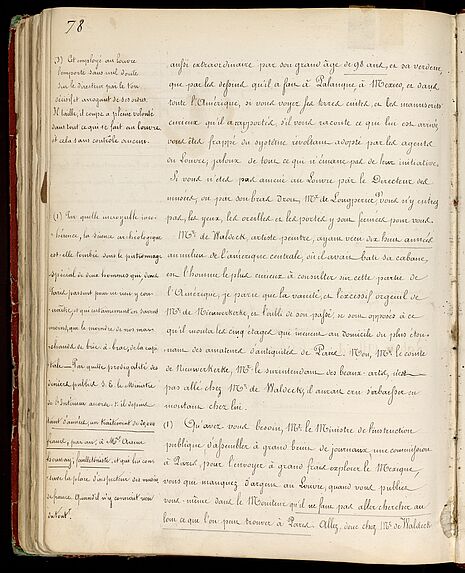 78
(3) Cet employé au louvre
l'emporte sans nul doute
sur le directeur par le ton
décisif et arrogant de ses idées.
Il taille, il coupe à pleine volonté
dans tout ce qui se fait au Louvre,
et cela sans contrôle aucun.
(1) Par quelle incroyable inco-
hérence, la science archéologique
est-elle tombée dans le patronage
spécial de deux hommes qui d'un
haut passent pour ne rien y con-
naître, et qui certainement en savent
moins, que le moindre de nos mar-
chands de bric à brac, de la capi-
tale — Par quelle prodigalité des
deniers publics S. E. le Ministre
de l'intérieur accorde
tant d'années, un traitement de
francs, par an, à Mr.
Houssay, feuilletoniste, et qui lui con-
serve la place d'inspecteur des musées
de france. Quand il n'y connaît rien
du tout.
aussi extraordinaire par son grand âge de 98 ans, et sa verdeur,
que par les dessins qu'il a fait à Palanque, à Mexico, et dans
toute l'Amérique, si vous voyez ses terres cuites, et les manuscrits
curieux qu'il a rapportés, s'il vous raconte ce que lui est arrivé
vous êtes frappé du système révoltant adopté par les agents
du Louvre, jaloux de tout ce qui n'émane pas de leur initiative.
Si vous n'êtes pas amené au Louvre par le Directeur des
musées, ou par son bras droit, Mr. de Longperier (3) vous n'y entrez
pas, les yeux, les oreilles et les portes y sont fermées pour vous.
Mr. de Waldeck, artiste peintre, ayant vécu dix huit années
au milieu de l'amérique centrale, où il avait bâti sa cabane,
est l'homme le plus curieux à consulter sur cette partie de
l'Amérique, et parce que la vanité, et l'excessif orgueil de
Mr. de Nieuwerkerke, et l'oubli de son passé, se sont opposés à ce
qu'il monta les cinq étages qui mènent au domicile du plus éton-
nant des amateurs d'antiquités de Paris. Non, Mr. le comte
de Nieuwerkerke, Mr. le surentendant des beaux arts, n'est
pas allé chez Mr. de Waldeck, il aurait cru s'abaisser en
montant chez lui.
(1) Qu'avez vous besoin, Mr. le Ministre de l'instruction
publique d'assembler à grand bruit de journaux, une commission
à Paris, pour l'envoyer à grand frais explorer le Mexique,
vous que manquez d'argent au Louvre, quand vous publiez
vous même dans le Moniteur qu'il ne faut pas aller chercher au
loin ce que l'on peut trouver à Paris. Allez, donc chez Mr. de Waldeck